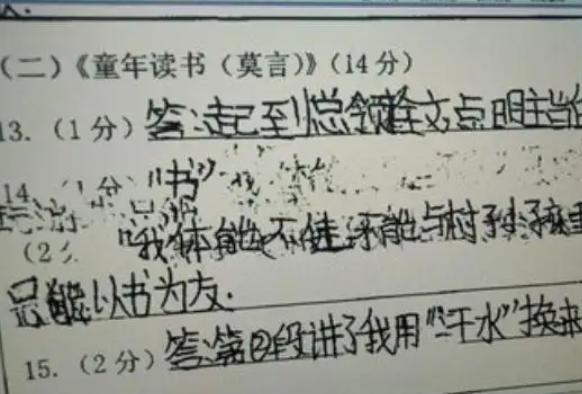 （二）《童年读书（莫言）》（14分）
13.（1分）答：起到总领全文点明主旨
14.（1分）"书"
（2分 "我体能不佳，不能与村子
只能以书为友.
15.（2分）答：第②段讲了我用"汗水"换来